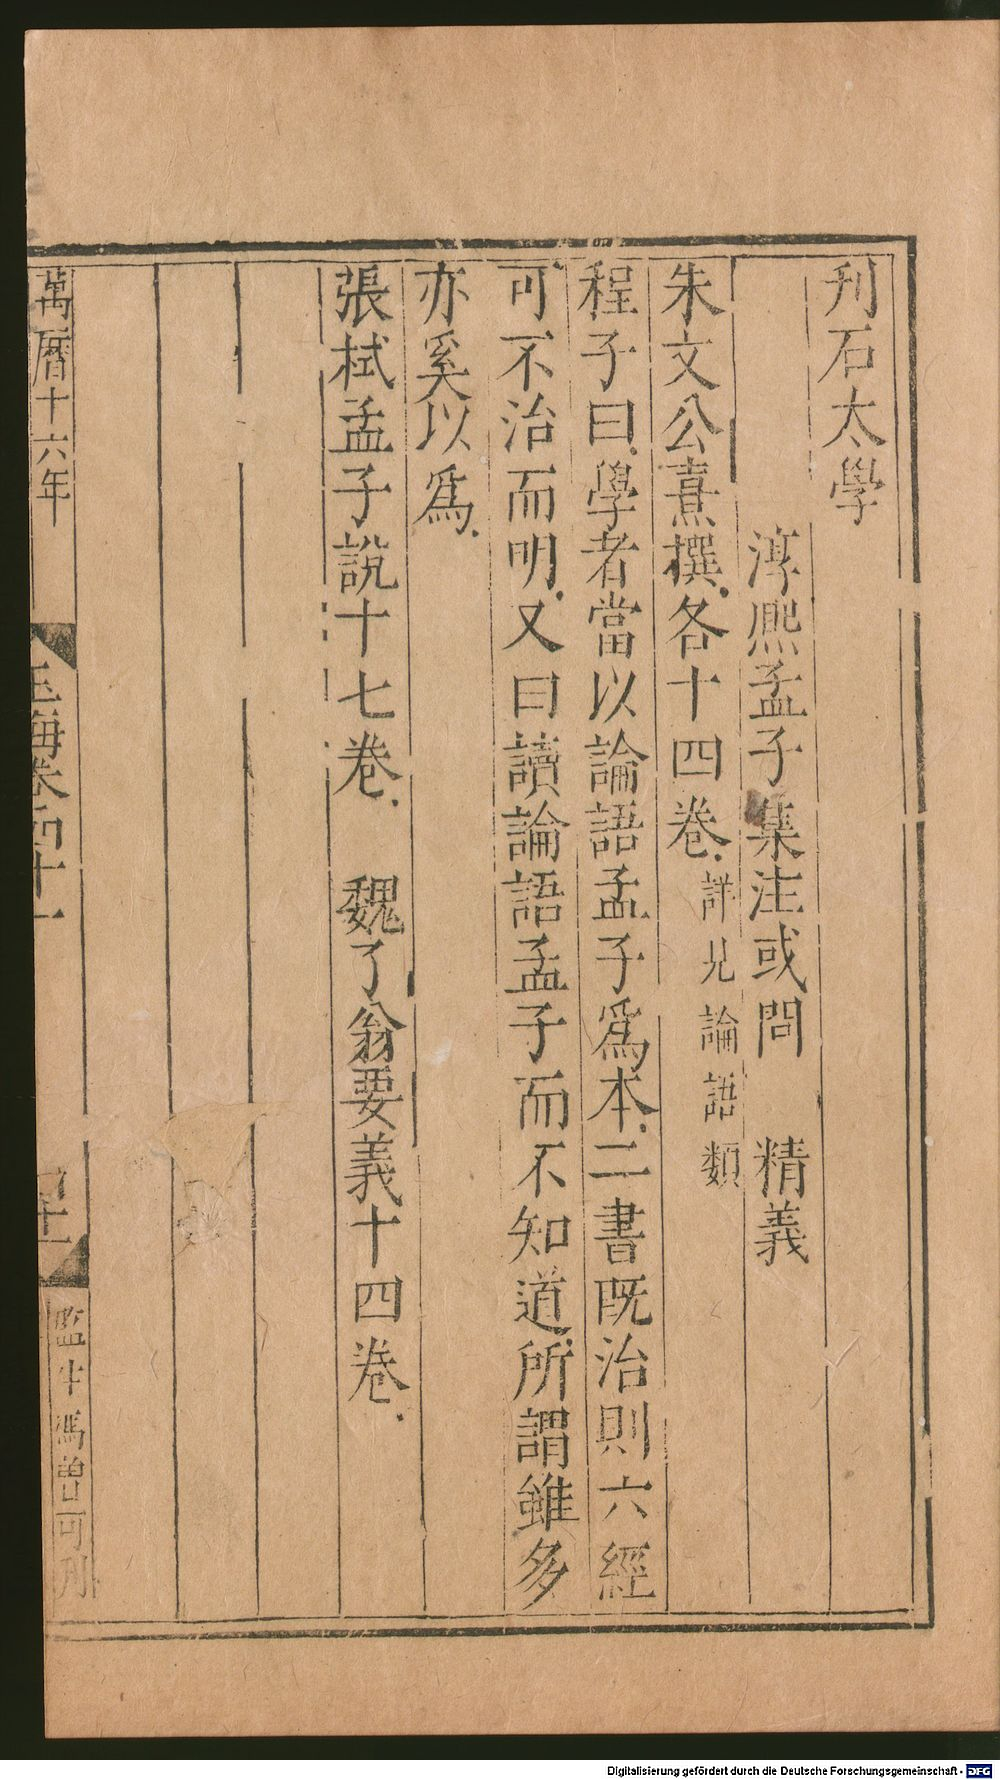 刋石太學
淳熈孟子集注或問　精義
朱文公熹撰各十四卷詳見論語類
程子曰學者當以論語孟子爲本二書旣治則六經
可不治而明又曰讀論語孟子而不知道所謂雖多
亦奚以爲
張栻孟子說十七卷　魏了翁要義十四卷
萬曆十六年
玉海卷四十一
監生馮曾可刋
Digitalisierung gefördert durch die Deutsche Forschungsgemeinschaft - DFG